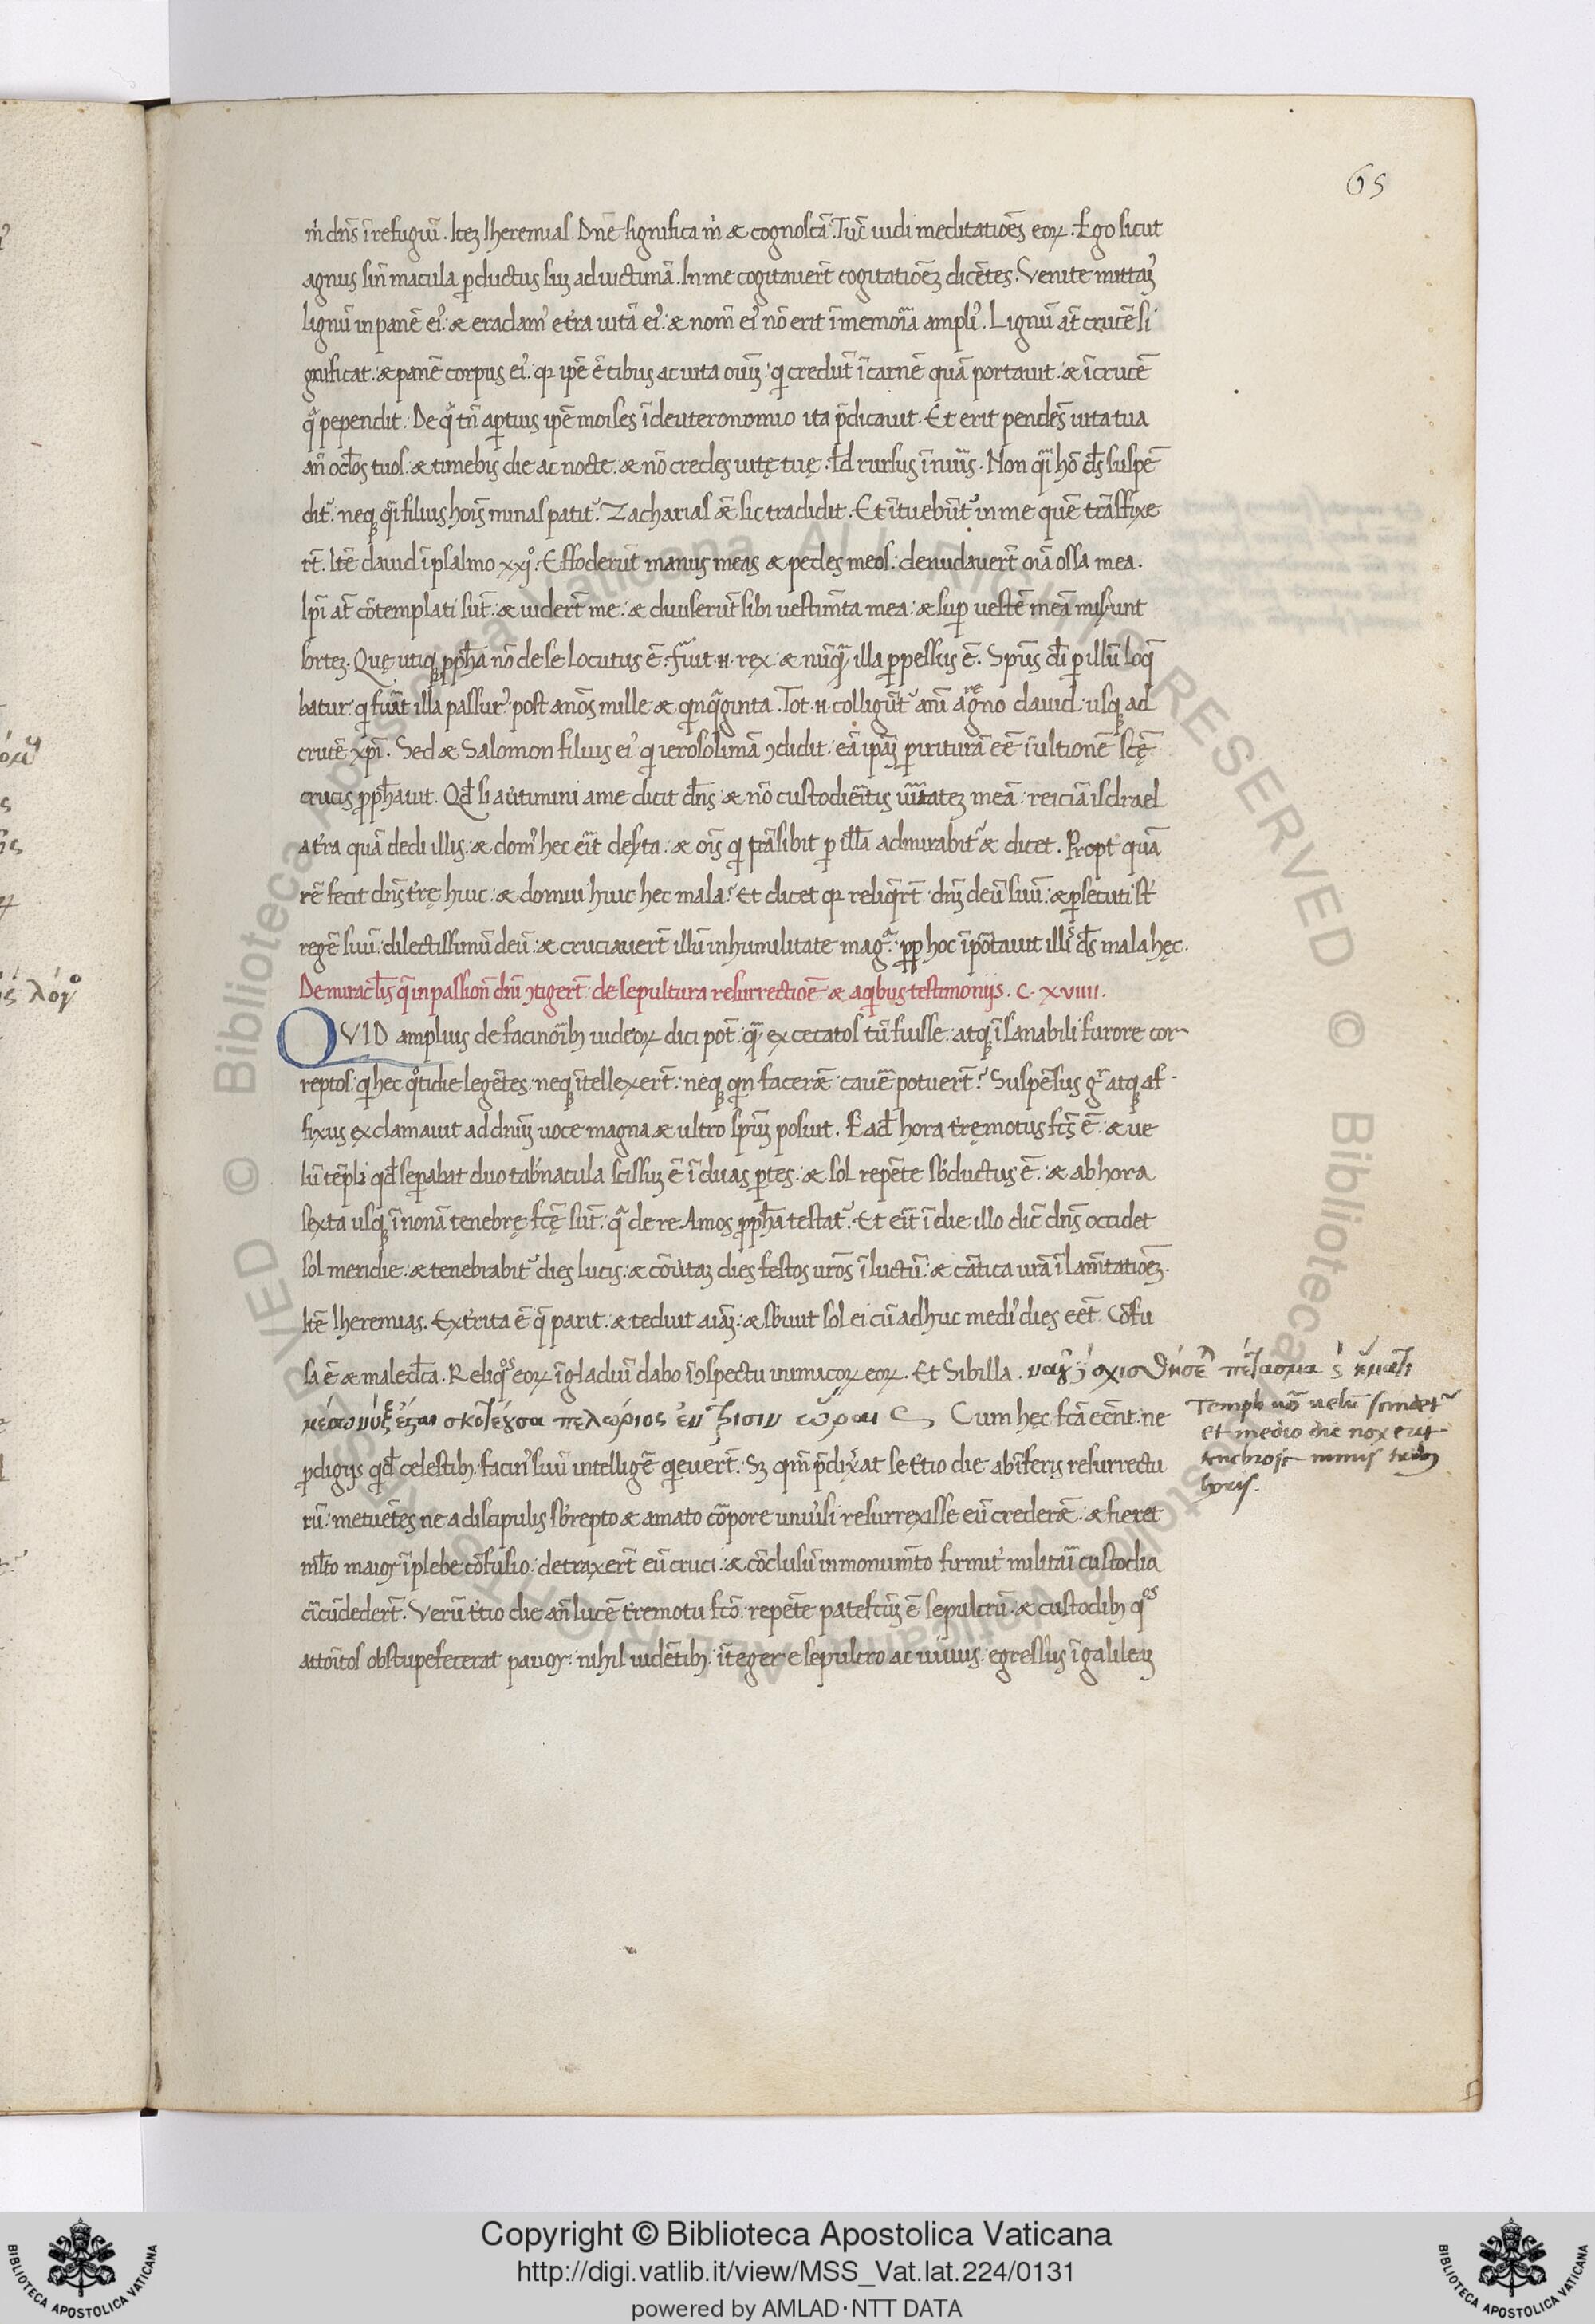 65
m̅ dn̅s ī refugiū. Itez Iheremias. Dn̅e significa m̅ & cognoscā. Tūc uidi meditatiōes eoꝝ. Ego sicut
agnus sin̄ macula ꝑductus suꝫ ad uictimā. In me cogitauer̄t cogitatiōeꝫ dicētes. Venite mittaꝫ
lignū in panē ei᾽. & eradam᾽ et̄ra uitā ei᾽. & nom̄ ei᾽ nō erit ī memoīa ampli᾽. Lignū at̄ crucē si
gnificat. & panē corpus ei᾽. qꝛ ip̄e ē cibus ac uita oīuꝫ. qͥ credūt ī carnē quā portauit. & ī crucē
qͣ pependit. De qͣ tn̄ aꝑtius ip̄e moises ī deuteronomio ita p̄dicauit. Et erit pendēs uita tua
an̄ oc̄los tuos. & timebis die ac nocte. & nō credes uitę tuę. Id rursus ī nuīs. Non qͣi hō ds̄ suspē
dit᾽. neqꝫ qͣi filius hoīs minas patit᾽. Zacharias ēt sic tradidit. Et ītuebūt᾽ in me quē trāsfixe
rt̄. Itē dauid ī psalmo xxjͦ. Effoderūt manus meas & pedes meos. denudauer̄t oīa ossa mea.
Ip̄i at̄ cōtemplati sūt. & uider̄t me. & diuiserūt sibi uestim̄ta mea. & suꝑ uestē meā miserunt
sortez. Quę utiqꝫ ꝓpħa nō de se locutus ē. fuit .n. rex. & nūqͣ illa ꝑpessus ē. Spūs dī ꝑ illū loq̄
batur. qͥ fuāt illa passur᾽ post anōs mille & qͥnqͣginta. Tot .n. colligūt᾽ ani a regno dauid. usqꝫ ad
crucē xp̄i. Sed & Salomon filius ei᾽ qͥ ierosolimā ꝯdidit. eā ip̄aꝫ ꝑirituram eē ī ultionē scę̄
crucis ꝓpħauit. Qd̄ si autimini a me dicit dn̄s. & nō custodieītis uīitatez meā. reiciā isdrael
a t̄ra quā dedi illis. & dom᾽ hec eīt deserta. & oīs qͥ trāsibit ꝑ illā admirabit᾽ & dicet. Propt̄ quā
rē fecit dn̄s t̄rę huic. & domui huic hec mala? Et dicet qꝛ reliqͥrt̄ dn̄ꝫ deū suū. & ꝑsecuti st̄
regē suū. dilectissimū deū. & cruciauer̄t illū in humilitate magͣ. ꝓp̄ hoc īportauit illis ds̄ mala hęc.
De miracl̄is q̄ in passion̄ dn̄i ꝯtiger̄t. de sepultura resurrectiōe & a qͥbus testimonijs. C. XVIIII.
QVID amplius de facinorībꝫ iudeoꝝ dici pot̄. qͣ excecatos tū fuisse. atqꝫ īsanabili furore cor
reptos. qͥ hec qͦtidie legētes. neqꝫ ītellexer̄t. neqꝫ qͥn facerēt cauēe potuer̄t? Suspēsus gͥ atqꝫ af
fixus exclamauit ad dn̄uꝫ uoce magna & ultro sp̄uꝫ posuit. Ead̄ hora t̄ręmotus fc̄s ē. & ue
lū tēpli qd̄ seꝑabat duo tab̄nacula scissuꝫ ē ī duas ꝑtes. & sol repēte sb̄ductus ē. & ab hora
sexta usqꝫ ī nonā tenebrę fc̄ę sūt. qͣ de re Amos ꝓpħa testat᾽. Et eīt ī die illo dic̄ dn̄s occidet
sol meridie. & tenebrabit᾽ dies lucis. & cōūtaꝫ dies festos ur̄os ī luctū. & cātica urā ī lam̄tatiōeꝫ.
Itē Iheremias. Ext̄rita ē q̄ parit. & teduit aīaꝫ. & sb̄iuit sol ei cū adhuc medi᾽ dies eēt. Cōfu
sa ē & maledc̄a. Reliqͦs eoꝝ ī gladiū dabo ī ꝯspectu inimicoꝝ eoꝝ. Et Sibilla. ναῦ σχισθήσε πέτασμα ς ἤματι
μέσω νὺξ ἔσται σκοτόεσσα πελώριος ἐν τρισὶν ὥραις Cum hęc fc̄a eēnt. ne
ꝓdigijs qͥd̄ celestibꝫ facin᾽ suū intelligē qͥeuer̄t. Sꝫ qm̄ p̄dixat se t̄tio die ab īferis resurrectu
rū. metuētes ne a discipulis sb̄repto & amato corpore uniūsi resurrexisse eū crederēt. & fieret
ml̄to maior ī plebe cōfusio. detraxer̄t eū cruci. & cōclusū in monum̄to firmit̄ militaī custodia
cīcūdeder̄t. Verū t̄tio die an̄ lucē t̄remotu fc̄o. repēte patefc̄uꝫ ē sepulcrū. & custodibꝫ qͦs
attoītos obstupefecerat pauor. nihil uidētibꝫ. īteger e sepulcro ac uiuus. egressus ī galileaꝫ
Templi uō uelū scindet᾽
et medio die nox erit
tenebrosa nimis tribꝫ
horis.
Copyright © Biblioteca Apostolica Vaticana
http://digi.vatlib.it/view/MSS_Vat.lat.224/0131
powered by AMLAD·NTT DATA
BIBLIOTECA APOSTOLICA VATICANA
BIBLIOTECA APOSTOLICA VATICANA